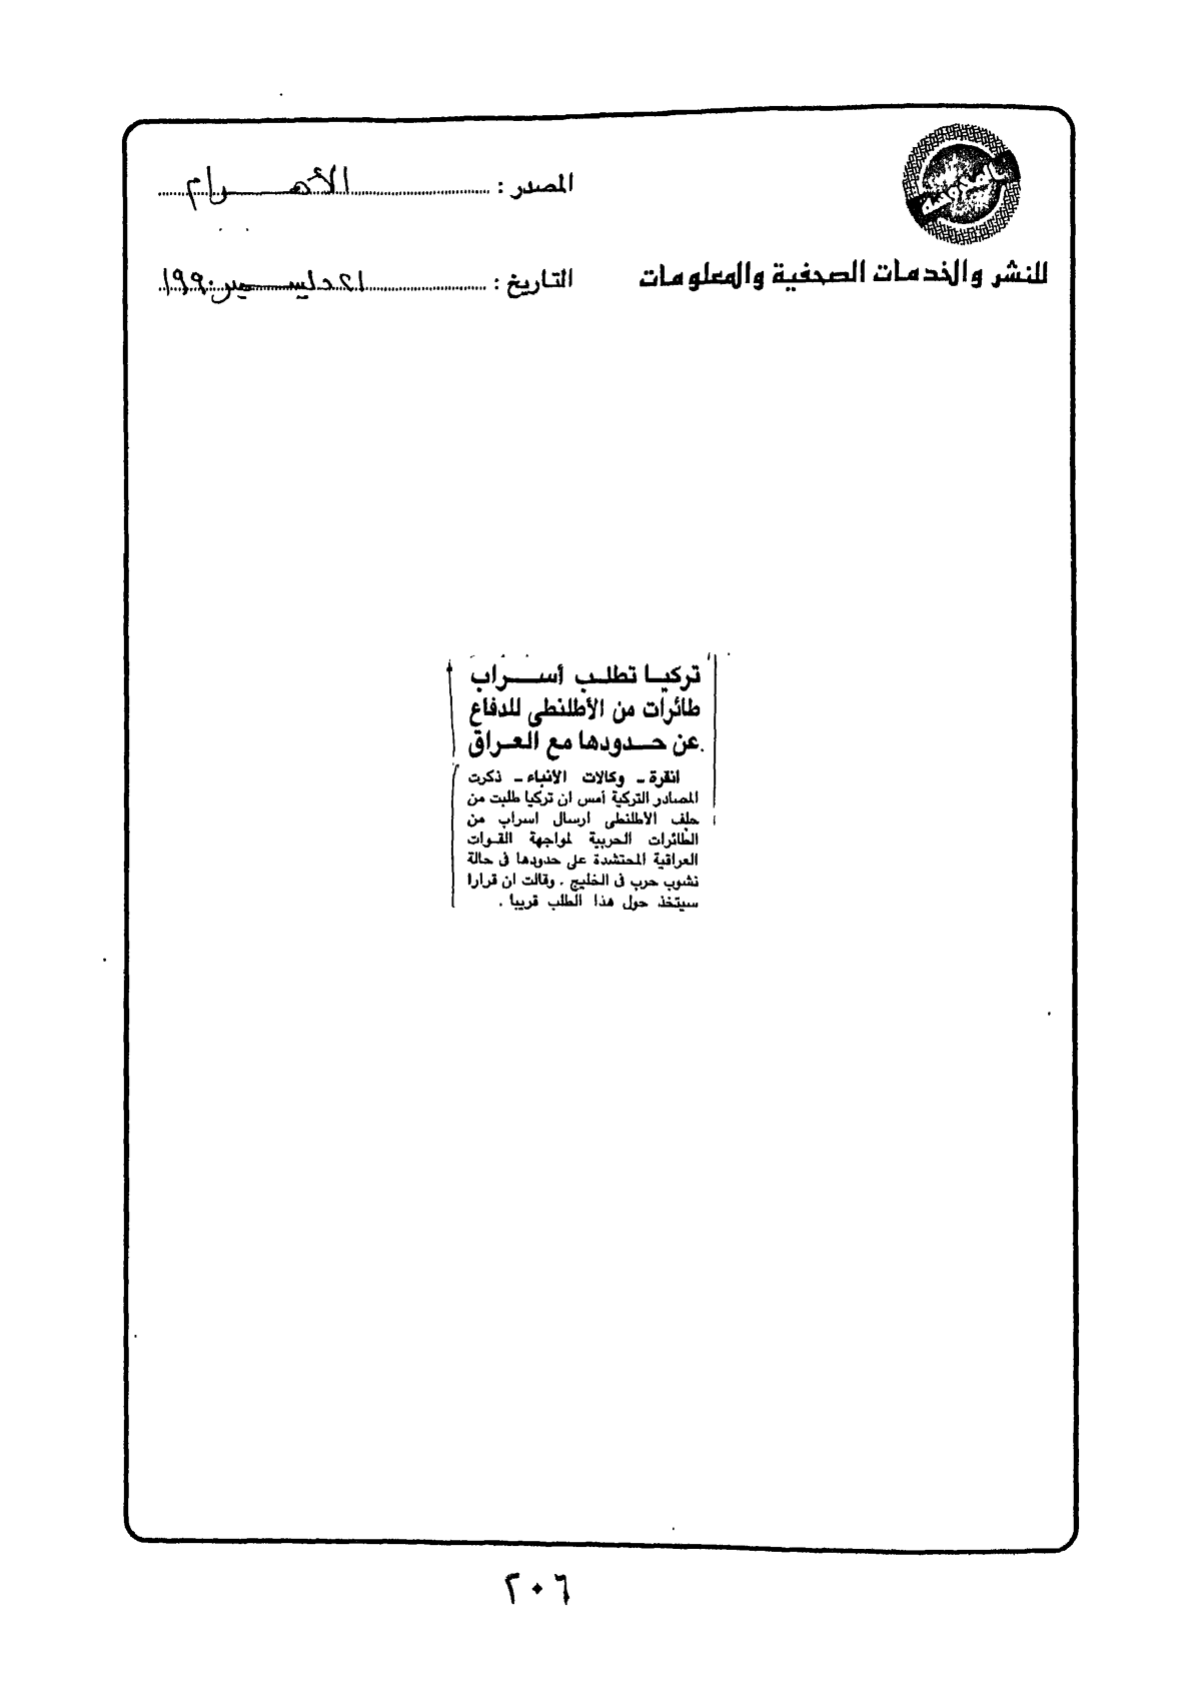 المصدر : الأهرام
للنشر والخدمات الصحفية والمعلومات
التاريخ : ٢١ ديسمبر ١٩٩٠
تركيا تطلب أسراب
طائرات من الأطلنطى للدفاع
عن حدودها مع العراق
انقرة ـ وكالات الانباء ـ ذكرت
المصادر التركية أمس ان تركيا طلبت من
حلف الاطلنطى ارسال اسراب من
الطائرات الحربية لمواجهة القوات
العراقية المحتشدة على حدودها فى حالة
نشوب حرب فى الخليج . وقالت ان قرارا
سيتخذ حول هذا الطلب قريبا .
٢٠٦